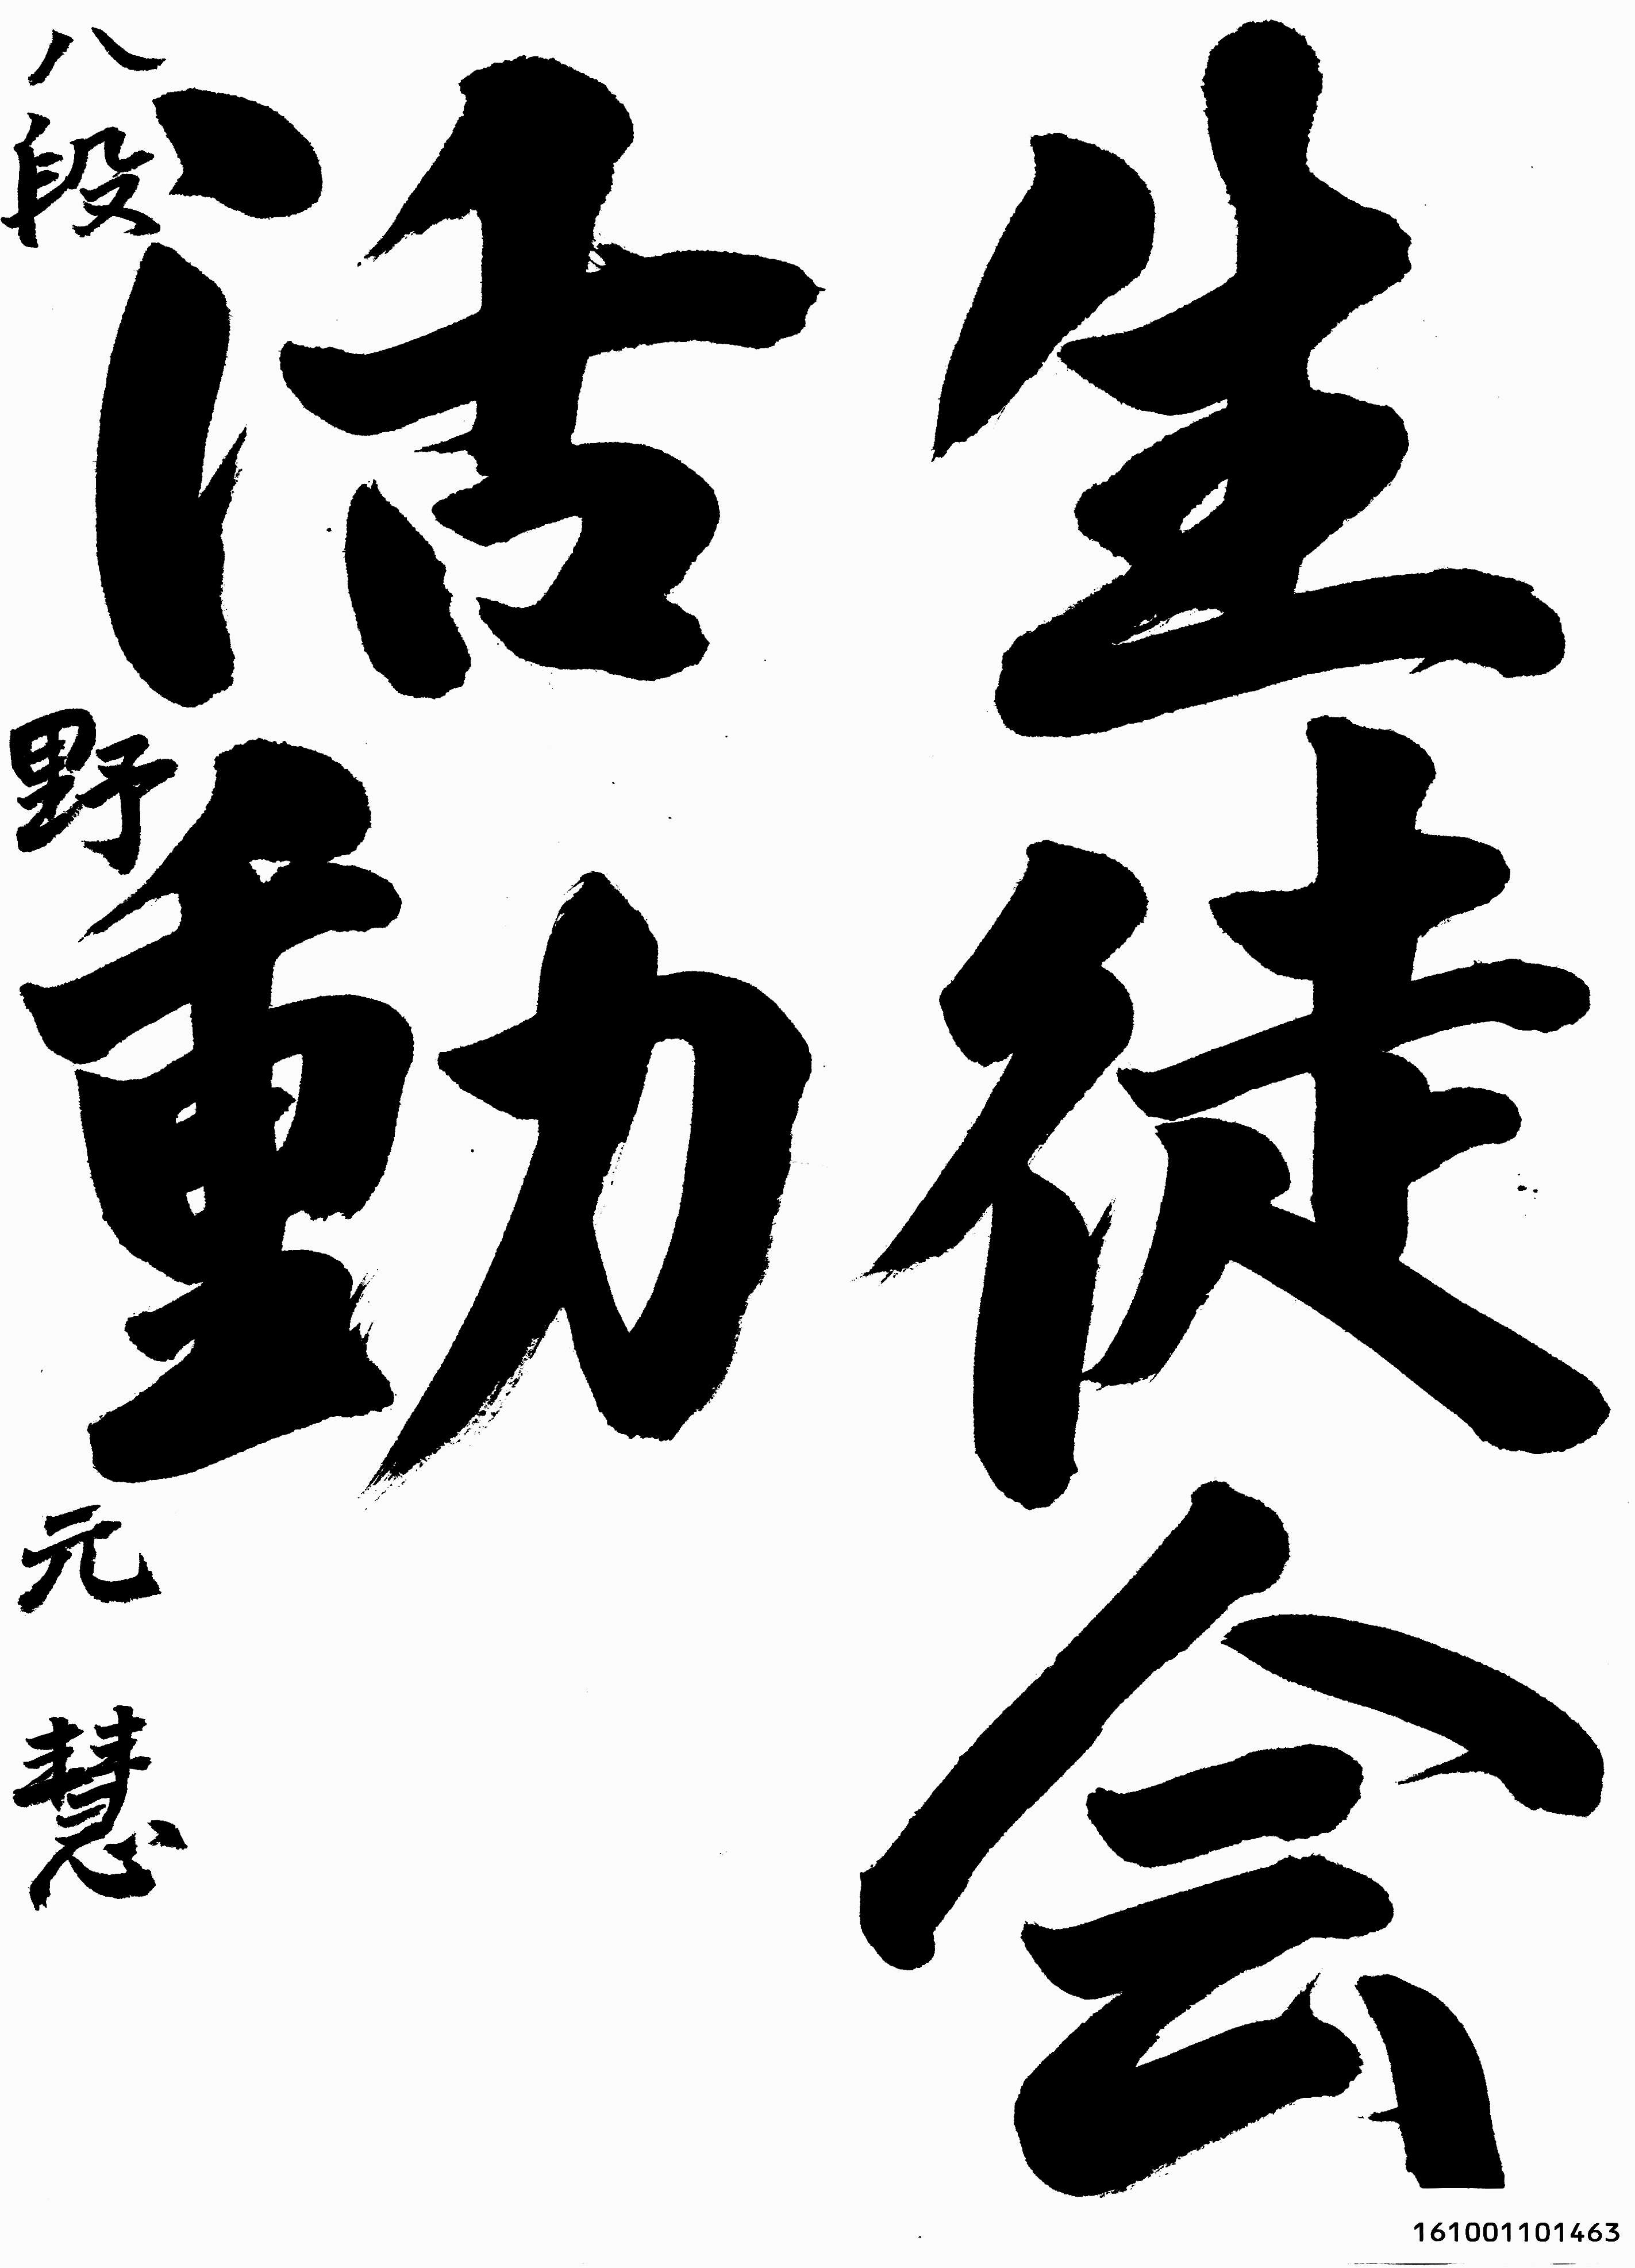 生徒会
活動
八段 野元 慧
161001101463